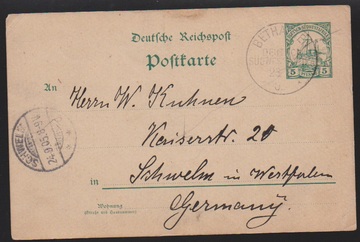 Deutsche Reichspost
Postkarte
BETHA
5 5
An
Herrn W. Kuhnen
Kaiserstr. 20
SCHWELM
24.9.05.8-9V
in Schwelm in Westfalen
Wohnung
(Straße und Hausnummer)
Germany.